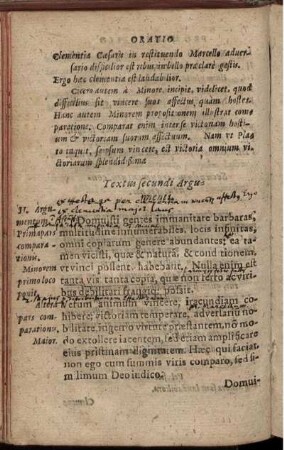 ORATIO
Clementia Cæsaris in restituendo Marcello adver-
sario difficilior est rebus in bello præclarè gestis.
Ergo hæc clementia est laudabilior.
Cicero autem à Minore incipit, videlicet, quod
difficilius sit vincere suos affectus, quàm hostes.
Hanc autem Minorem propositionem illustrat com-
paratione. Comparat enim interse victoriam hosti-
um & victoriam suorum affectuum. Nam ut Pla-
to inquit, seipsum vincere, est victoria omnium vi-
ctoriarum splendidissima
Textus secundi Argu-
II. Argu-
mentum
Prima pars
compara-
tionis,
Minorem
primo loco
ponit.
Altera
pars com-
parationis,
Maior.
Domuisti gentes immanitate barbaras,
multitudine innumerabiles, locis infinitas,
omni copiarum genere abundantes; ea ta-
men vicisti, quæ & natura, & conditionem,
ut vinci possent, habebant. Nulla enim est
tanta vis tanta copia, quæ non ferro ac viri-
bus debilitari frangique possit.
animum vincere, iracundiam co-
hibere; victoriam temperare, adversariū no-
bilitate, ingenio virtute præstantem, nō mo-
do extollere iacentem, sed etiam amplificare
eius pristinam dignitatem. Hæc qui faciat,
non ego cum summis viris comparo, sed si-
millimum Deo iudico.
Domui-